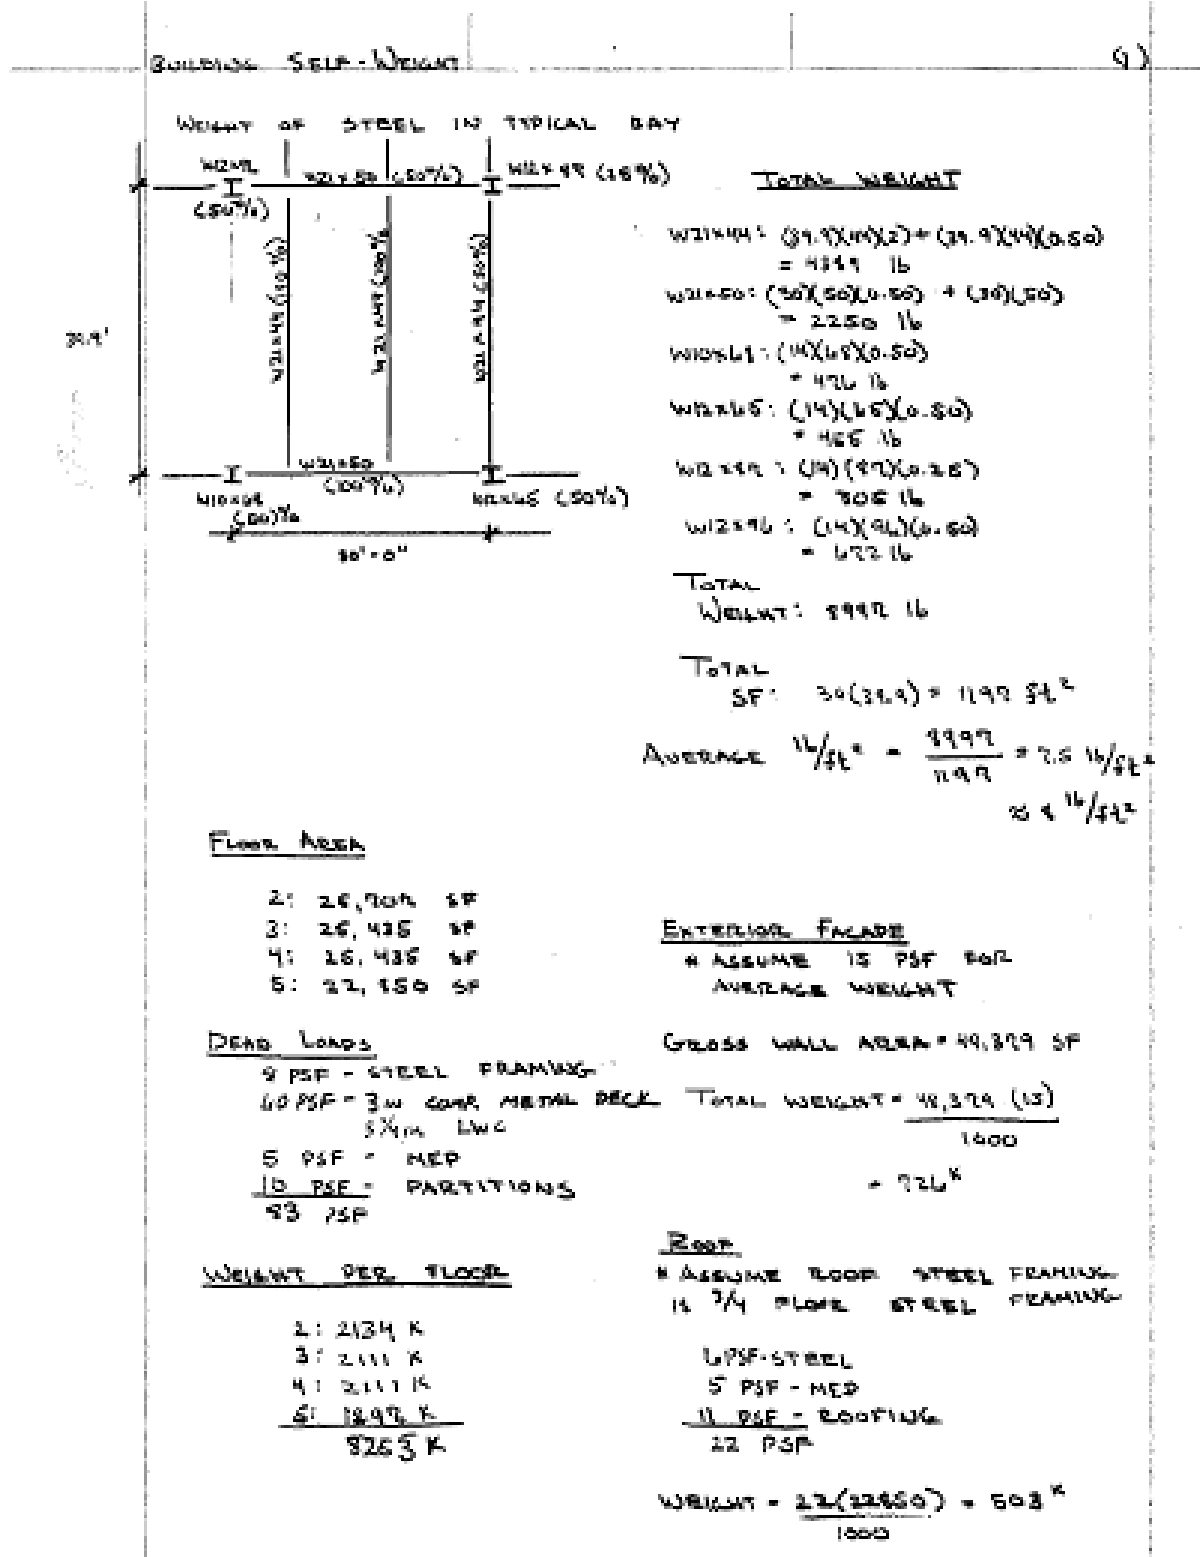 BUILDING SELF-WEIGHT
WEIGHT OF STEEL IN TYPICAL BAY
W21x50 (50%)
(50%)
W21x44 (100%)
W21x44 (100%)
W21x44 (50%)
39.9'
W21x50
(100%)
W10x68
(50)%
W12x65 (50%)
30'-0"
TOTAL WEIGHT
W21x44: (39.9)(44)(2)+(39.9)(44)(0.50)
= 4389 lb
W21x50: (30)(50)(0.50) + (30)(50)
= 2250 lb
W10x68: (14)(68)(0.50)
= 476 lb
W12x65: (14)(65)(0.50)
= 455 lb
(14)(87)(0.25)
= 305 lb
W12x96: (14)(96)(0.50)
= 672 lb
TOTAL
WEIGHT: lb
TOTAL
SF: 30(39.9) = 1197 ft²
AVERAGE lb/ft² = = 7.5 lb/ft²
≈ 8 lb/ft²
FLOOR AREA
2: SF
3: 25,435 SF
4: 25,435 SF
5: 22,850 SF
DEAD LOADS
8 PSF - STEEL FRAMING
60 PSF - 3in COMP. METAL DECK
LWC
5 PSF - MEP
10 PSF - PARTITIONS
83 PSF
WEIGHT PER FLOOR
2: 2134 K
3: 2111 K
4: 2111 K
5: 1897 K
8253 K
EXTERIOR FACADE
* ASSUME 15 PSF FOR
AVERAGE WEIGHT
GROSS WALL AREA = SF
TOTAL WEIGHT = (15)
1000
= 726 K
ROOF
* ASSUME ROOF STEEL FRAMING
IS 3/4 FLOOR STEEL FRAMING
6 PSF - STEEL
5 PSF - MEP
11 PSF - ROOFING
22 PSF
WEIGHT = 22(22850) = 503 K
1000